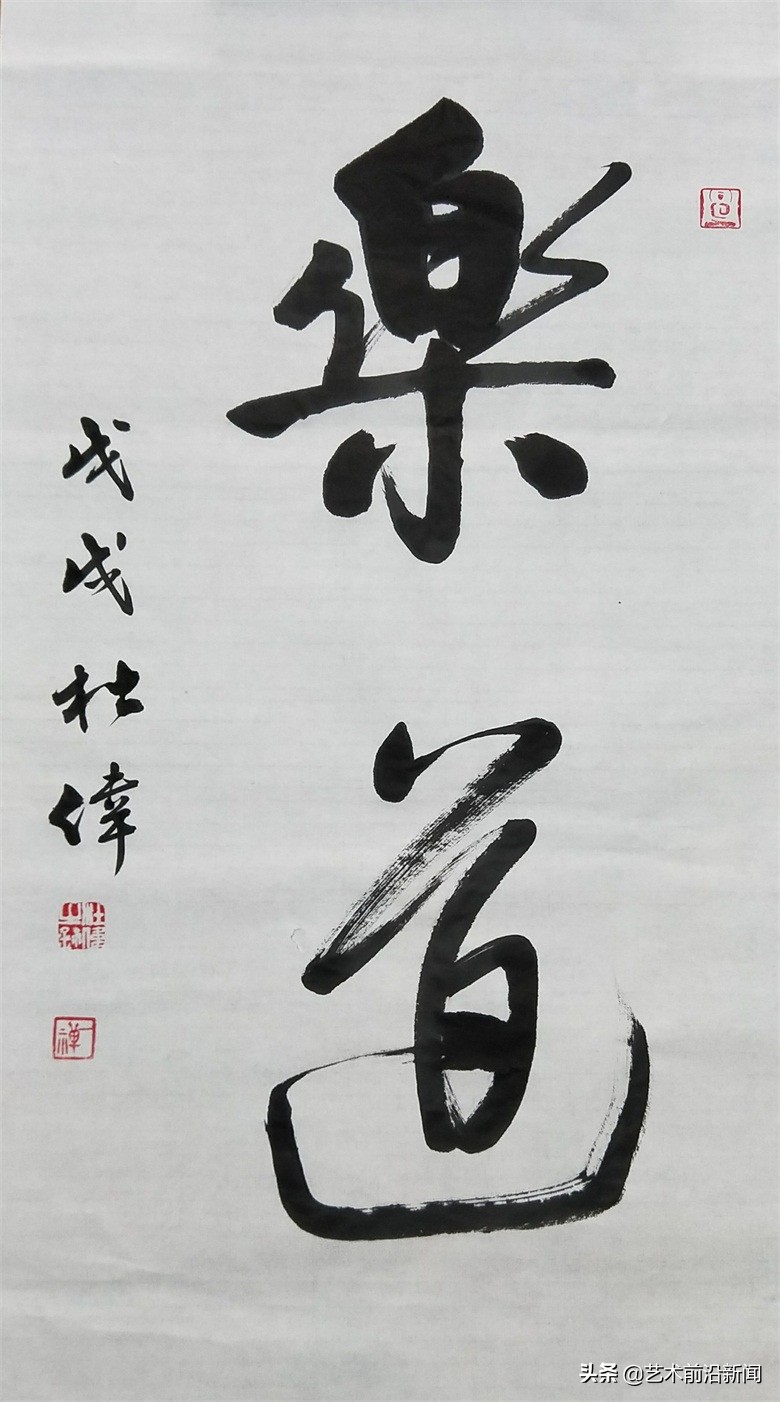 樂道
戊戌杜偉
禅
头条 @艺术前沿新闻